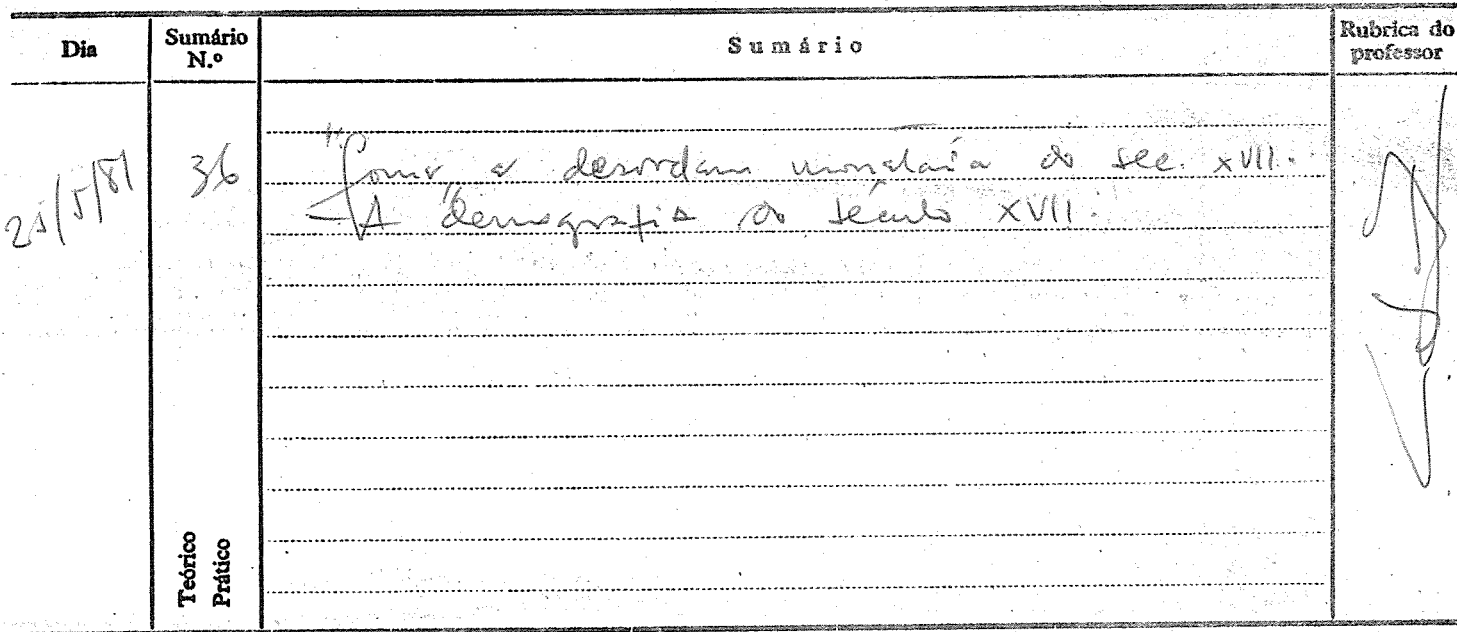 Dia
Sumário N.º
Sumário
Rubrica do professor
25/5/81
36
a desordem monetária do sec. XVII.
A demografia do século XVII.
Teórico
Prático